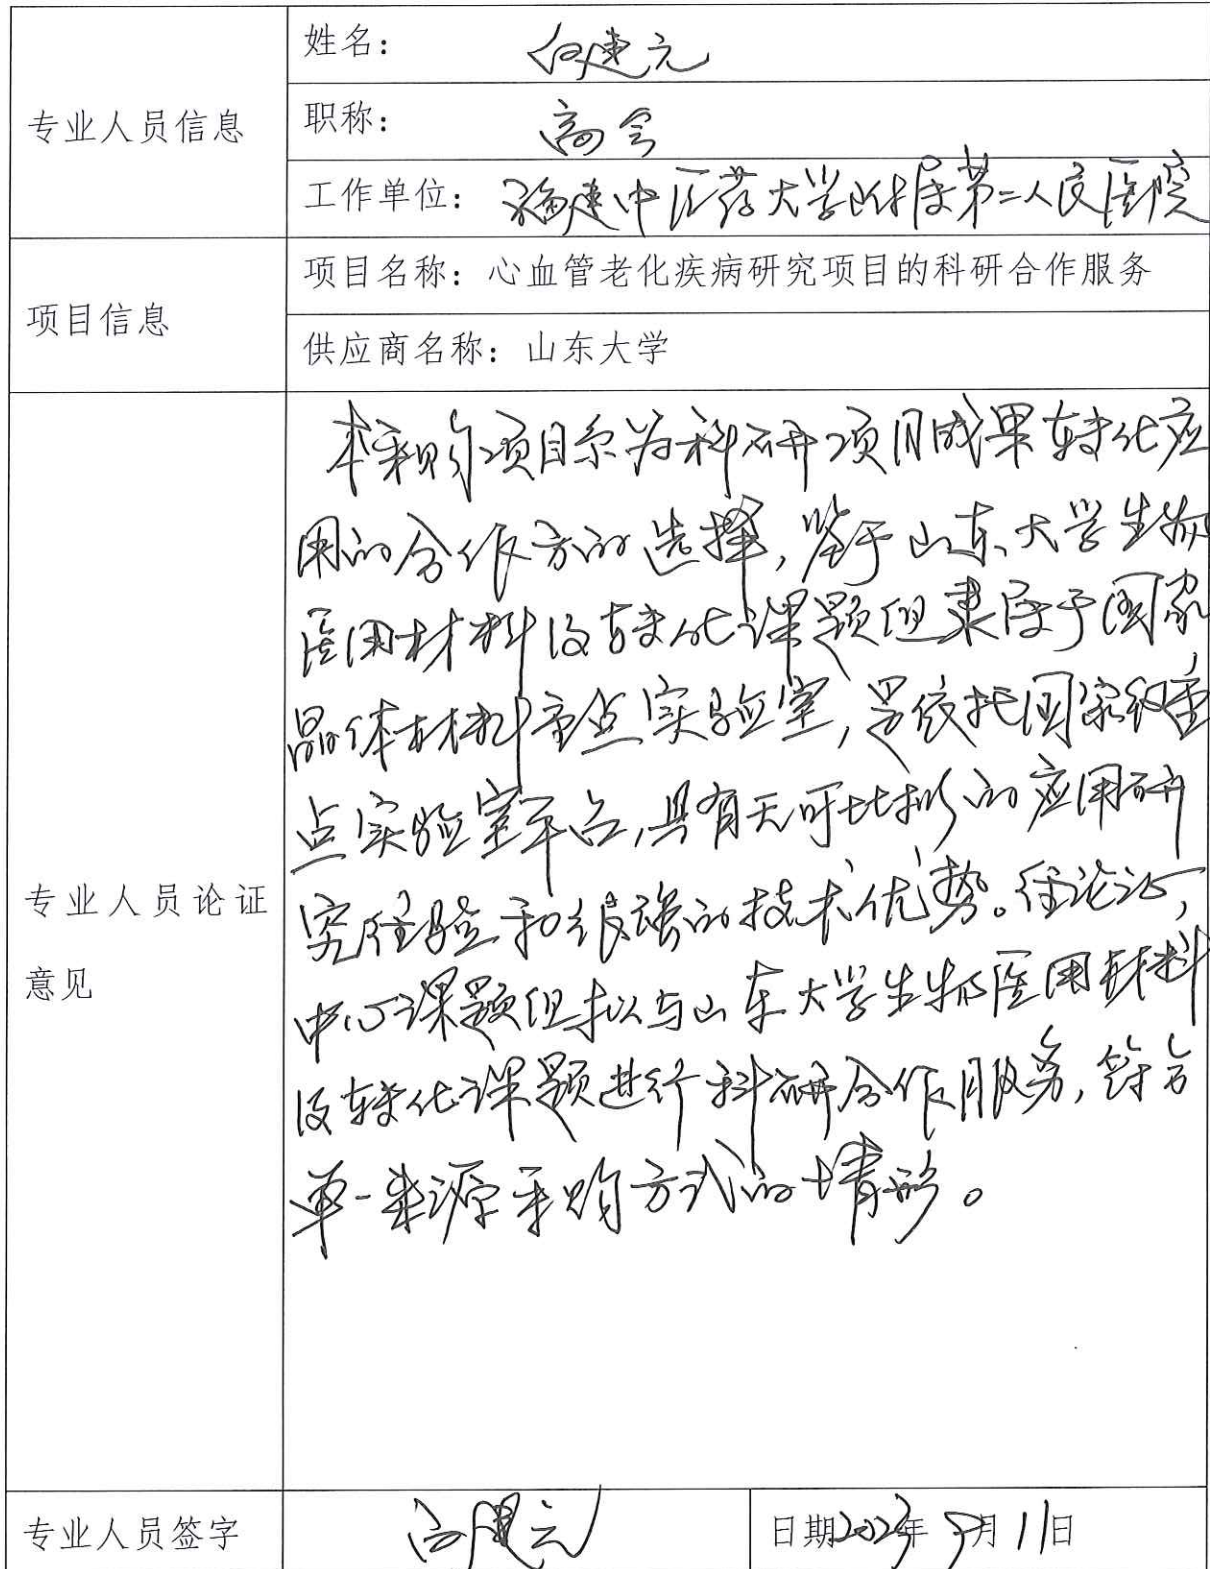 专业人员信息
姓名：
职称： 高会
工作单位： 福建中医药大学附属第二人民医院
项目信息
项目名称：心血管老化疾病研究项目的科研合作服务
供应商名称：山东大学
专业人员论证
意见
本采购项目系为科研项目成果转化应
用的合作方的选择，鉴于山东大学生物
医用材料及转化课题组隶属于国家
晶体材料重点实验室，是依托国家级重
点实验室平台，具有无可比拟的应用研
究经验和很强的技术优势。经论证，
中心课题组拟与山东大学生物医用材料
及转化课题进行科研合作服务，符合
单一来源采购方式的情形。
专业人员签字
日期2023年 9月11日